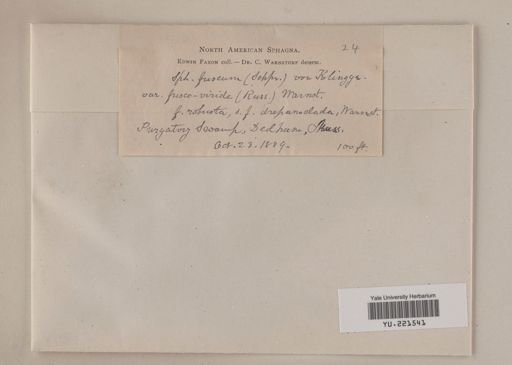 North American Sphagna.
24
Edwin Faxon coll. — Dr. C. Warnstorf determ.
Sph. fuscum (Schpr.) von Klinggr.
var. fusco-viride (Russ.) Warnst.
f. robusta, s. f. drepanoclada, Warnst.
Purgatory Swamp, Dedham, Mass.
Oct. 23. 1889.
100 ft.
Yale University Herbarium
YU.221541